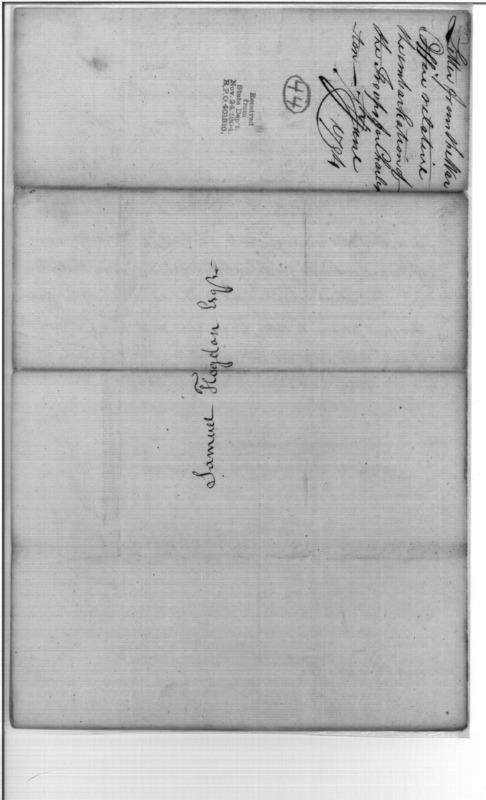 Letter from the War
Office relative
the embarkation of
the Troops for Charles
ton —
June
1794
44
Received
from
State Dep't,
Nov. 24, 1894,
R.P.O. 401810.
Samuel Hogdon Esqr